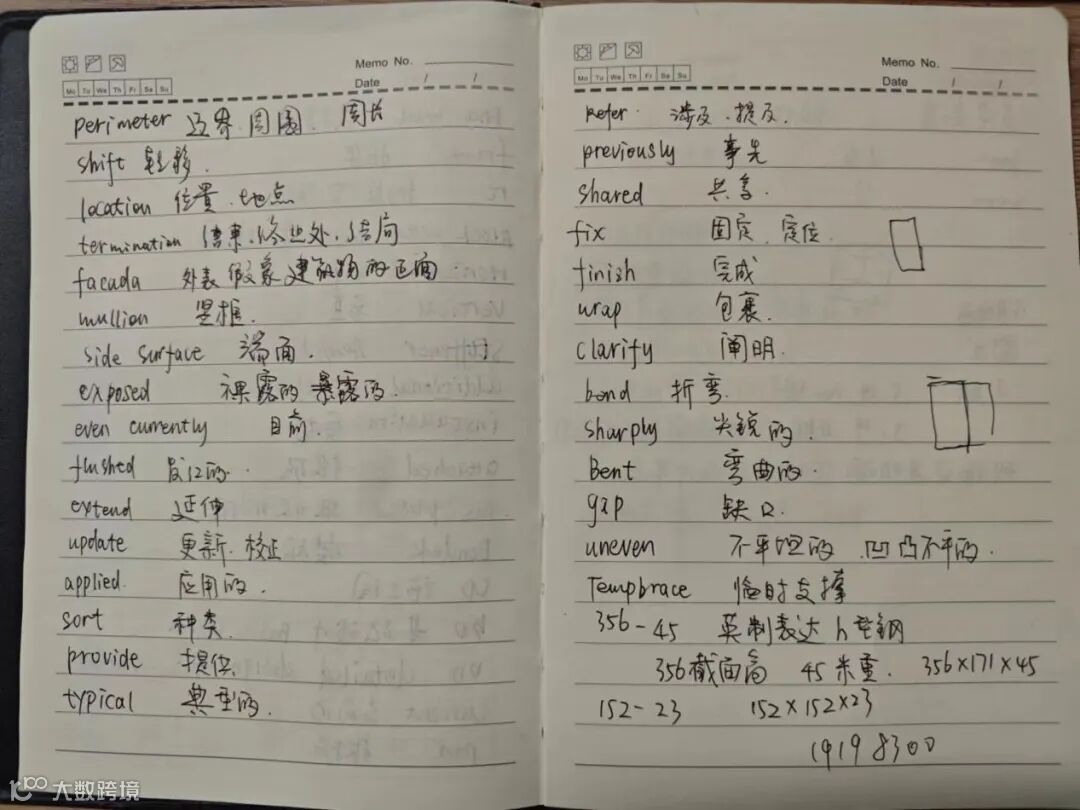 Memo No.
Mo Tu We Th Fr Sa Su
Date / /
perimeter 边界.周围. 周长
shift 转移.
location 位置.地点
termination 结束.终止处.结局
facada 外表 假象 建筑物的正面.
mullion 竖框.
side surface 端面.
exposed 裸露的 暴露的.
even currently 目前.
flushed 发红的.
extend 延伸
update 更新.校正
applied. 应用的.
sort 种类.
provide 提供.
typical 典型的.
Memo No.
Mo Tu We Th Fr Sa Su
Date / /
Refer. 涉及.提及.
previously 事先
shared 共享.
fix 固定.定位.
finish 完成
wrap 包裹.
clarify 阐明.
bend 折弯.
sharply 尖锐的.
Bent 弯曲的.
gap 缺口.
uneven 不平坦的.凹凸不平的.
Tempbrace 临时支撑
356-45 英制表达 h型钢
356截面高 45米重. 356×171×45
152-23 152×152×23
1919 8300
大数跨境